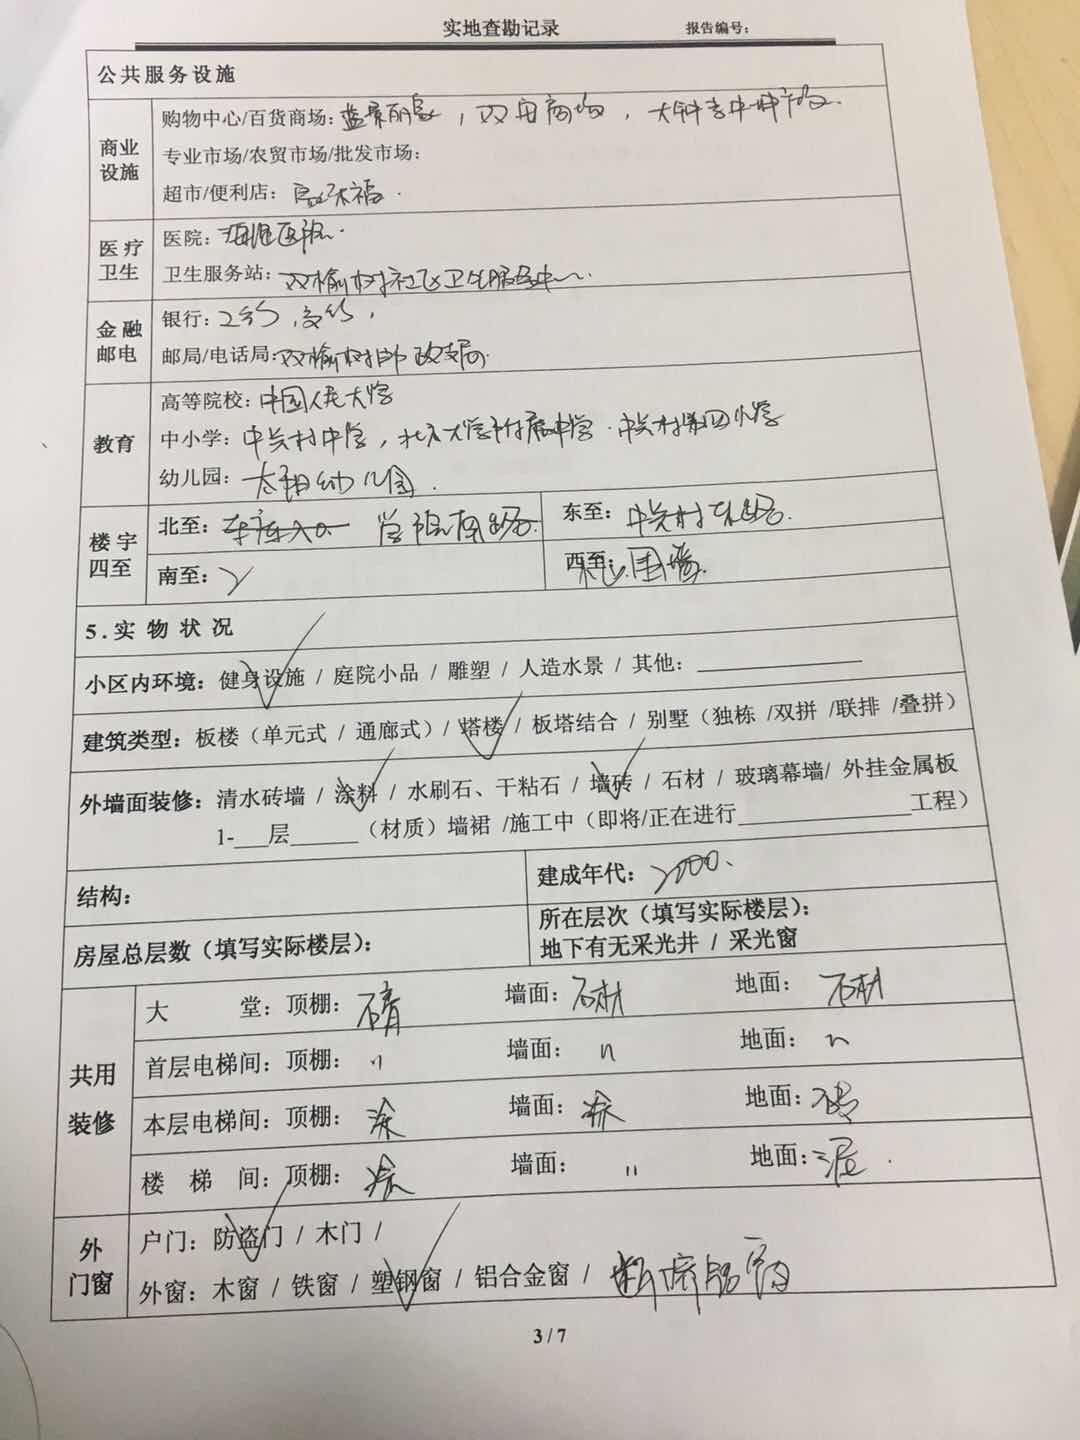 实地查勘记录 报告编号：
公共服务设施
商业设施
购物中心/百货商场：蓝景丽家，双安商场，大钟寺中坤广场.
专业市场/农贸市场/批发市场：
超市/便利店：
医疗卫生
医院：海淀医院.
卫生服务站：双榆树社区卫生服务中心.
金融邮电
银行：工行，交行，
邮局/电话局：双榆树邮政支局.
教育
高等院校：中国人民大学
中小学：中关村中学，北京大学附属中学.中关村第四小学
幼儿园：太阳幼儿园.
楼宇四至
北至：车库入口 学院南路. 东至：中关村东路.
南至： 西至：围墙.
5.实物状况
小区内环境：健身设施 / 庭院小品 / 雕塑 / 人造水景 / 其他：
建筑类型：板楼（单元式 / 通廊式）/ 塔楼 / 板塔结合 / 别墅（独栋 /双拼 /联排 /叠拼）
外墙面装修：清水砖墙 / 涂料 / 水刷石、干粘石 / 墙砖 / 石材 / 玻璃幕墙/ 外挂金属板
1-___层______（材质）墙裙 /施工中（即将/正在进行_______________工程）
结构： 建成年代：2000.
房屋总层数（填写实际楼层）： 所在层次（填写实际楼层）：
地下有无采光井 / 采光窗
共用装修
大堂：顶棚：石膏 墙面：石材 地面：石材
首层电梯间：顶棚：〃 墙面：〃 地面：〃
本层电梯间：顶棚：涂 墙面：涂 地面：砖
楼梯间：顶棚：涂 墙面：〃 地面：水泥.
外门窗
户门：防盗门 / 木门 /
外窗：木窗 / 铁窗 / 塑钢窗 / 铝合金窗 / 断桥铝窗
3 / 7